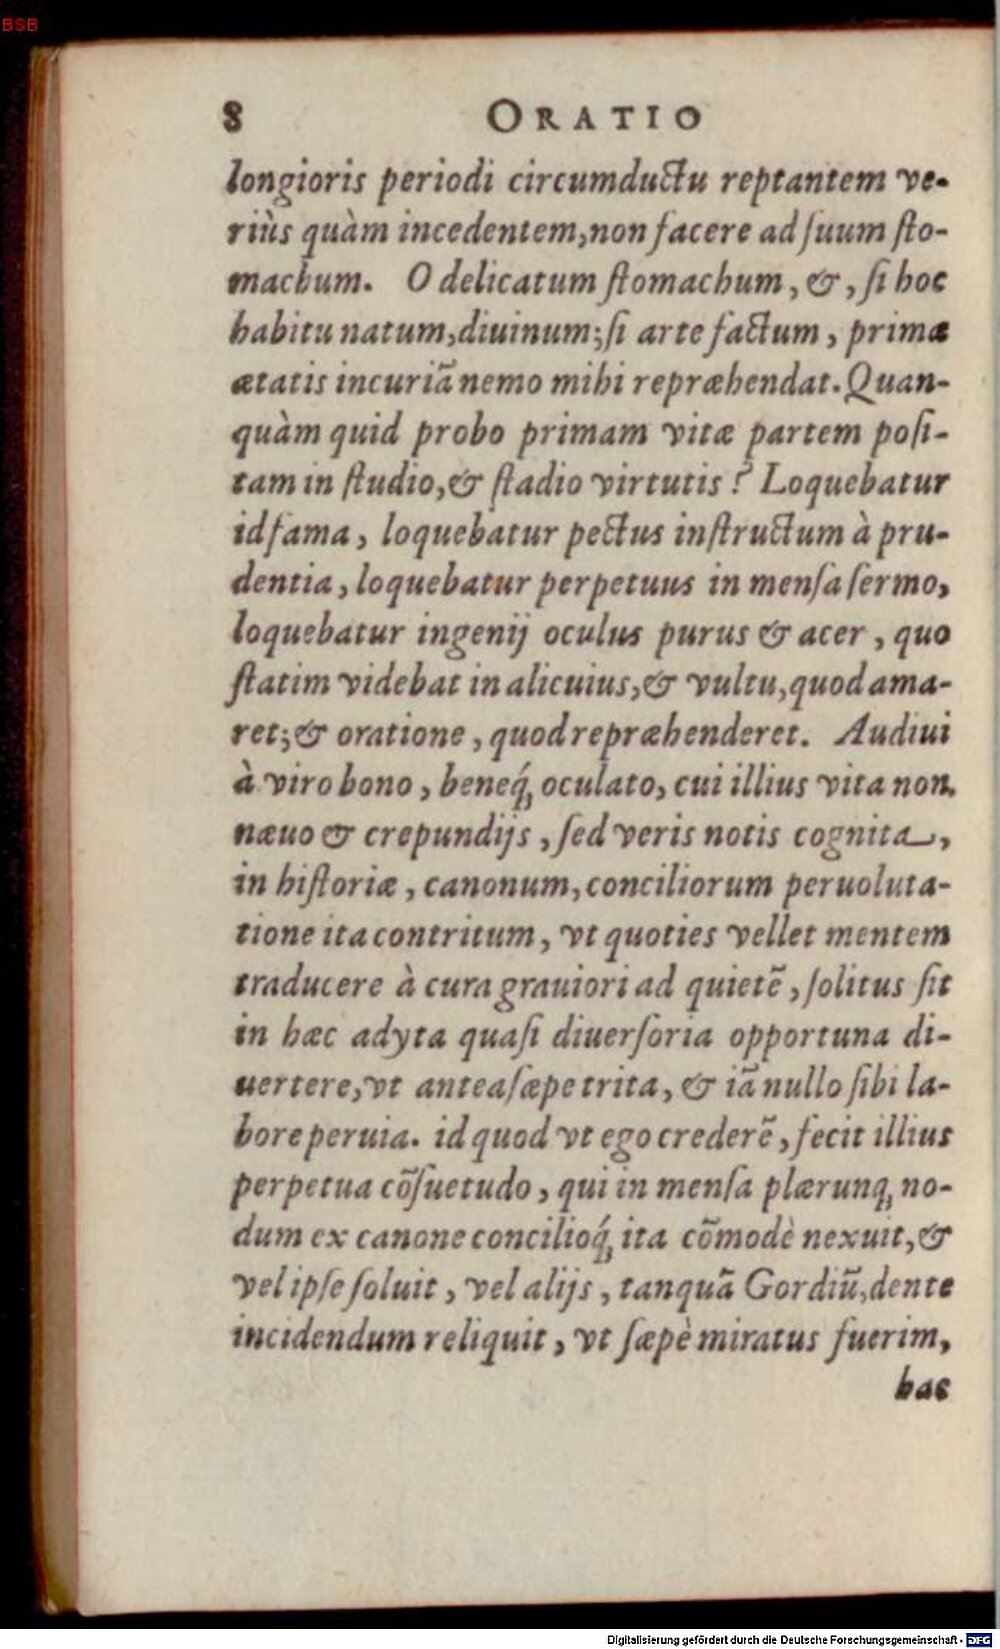 BSB
8 ORATIO
longioris periodi circumductu reptantem ve-
riùs quàm incedentem, non facere ad ſuum ſto-
machum. O delicatum ſtomachum, &, ſi hoc
habitu natum, diuinum; ſi arte factum, primæ
ætatis incuriã nemo mihi repræhendat. Quan-
quàm quid probo primam vitæ partem poſi-
tam in ſtudio, & ſtadio virtutis? Loquebatur
id fama, loquebatur pectus inſtructum à pru-
dentia, loquebatur perpetuus in menſa ſermo,
loquebatur ingenij oculus purus & acer, quo
ſtatim videbat in alicuius, & vultu, quod ama-
ret; & oratione, quod repræhenderet. Audiui
à viro bono, beneq́; oculato, cui illius vita non
næuo & crepundijs, ſed veris notis cognita,
in hiſtoriæ, canonum, conciliorum peruoluta-
tione ita contritum, vt quoties vellet mentem
traducere à cura grauiori ad quietẽ, ſolitus ſit
in hæc adyta quaſi diuerſoria opportuna di-
uertere, vt antea ſæpe trita, & iã nullo ſibi la-
bore peruia. id quod vt ego crederẽ, fecit illius
perpetua cõſuetudo, qui in menſa plærunq; no-
dum ex canone concilioq́; ita cõmodè nexuit, &
vel ipſe ſoluit, vel alijs, tanquã Gordiũ, dente
incidendum reliquit, vt ſæpè miratus fuerim,
hac
Digitalisierung gefördert durch die Deutsche Forschungsgemeinschaft - DFG